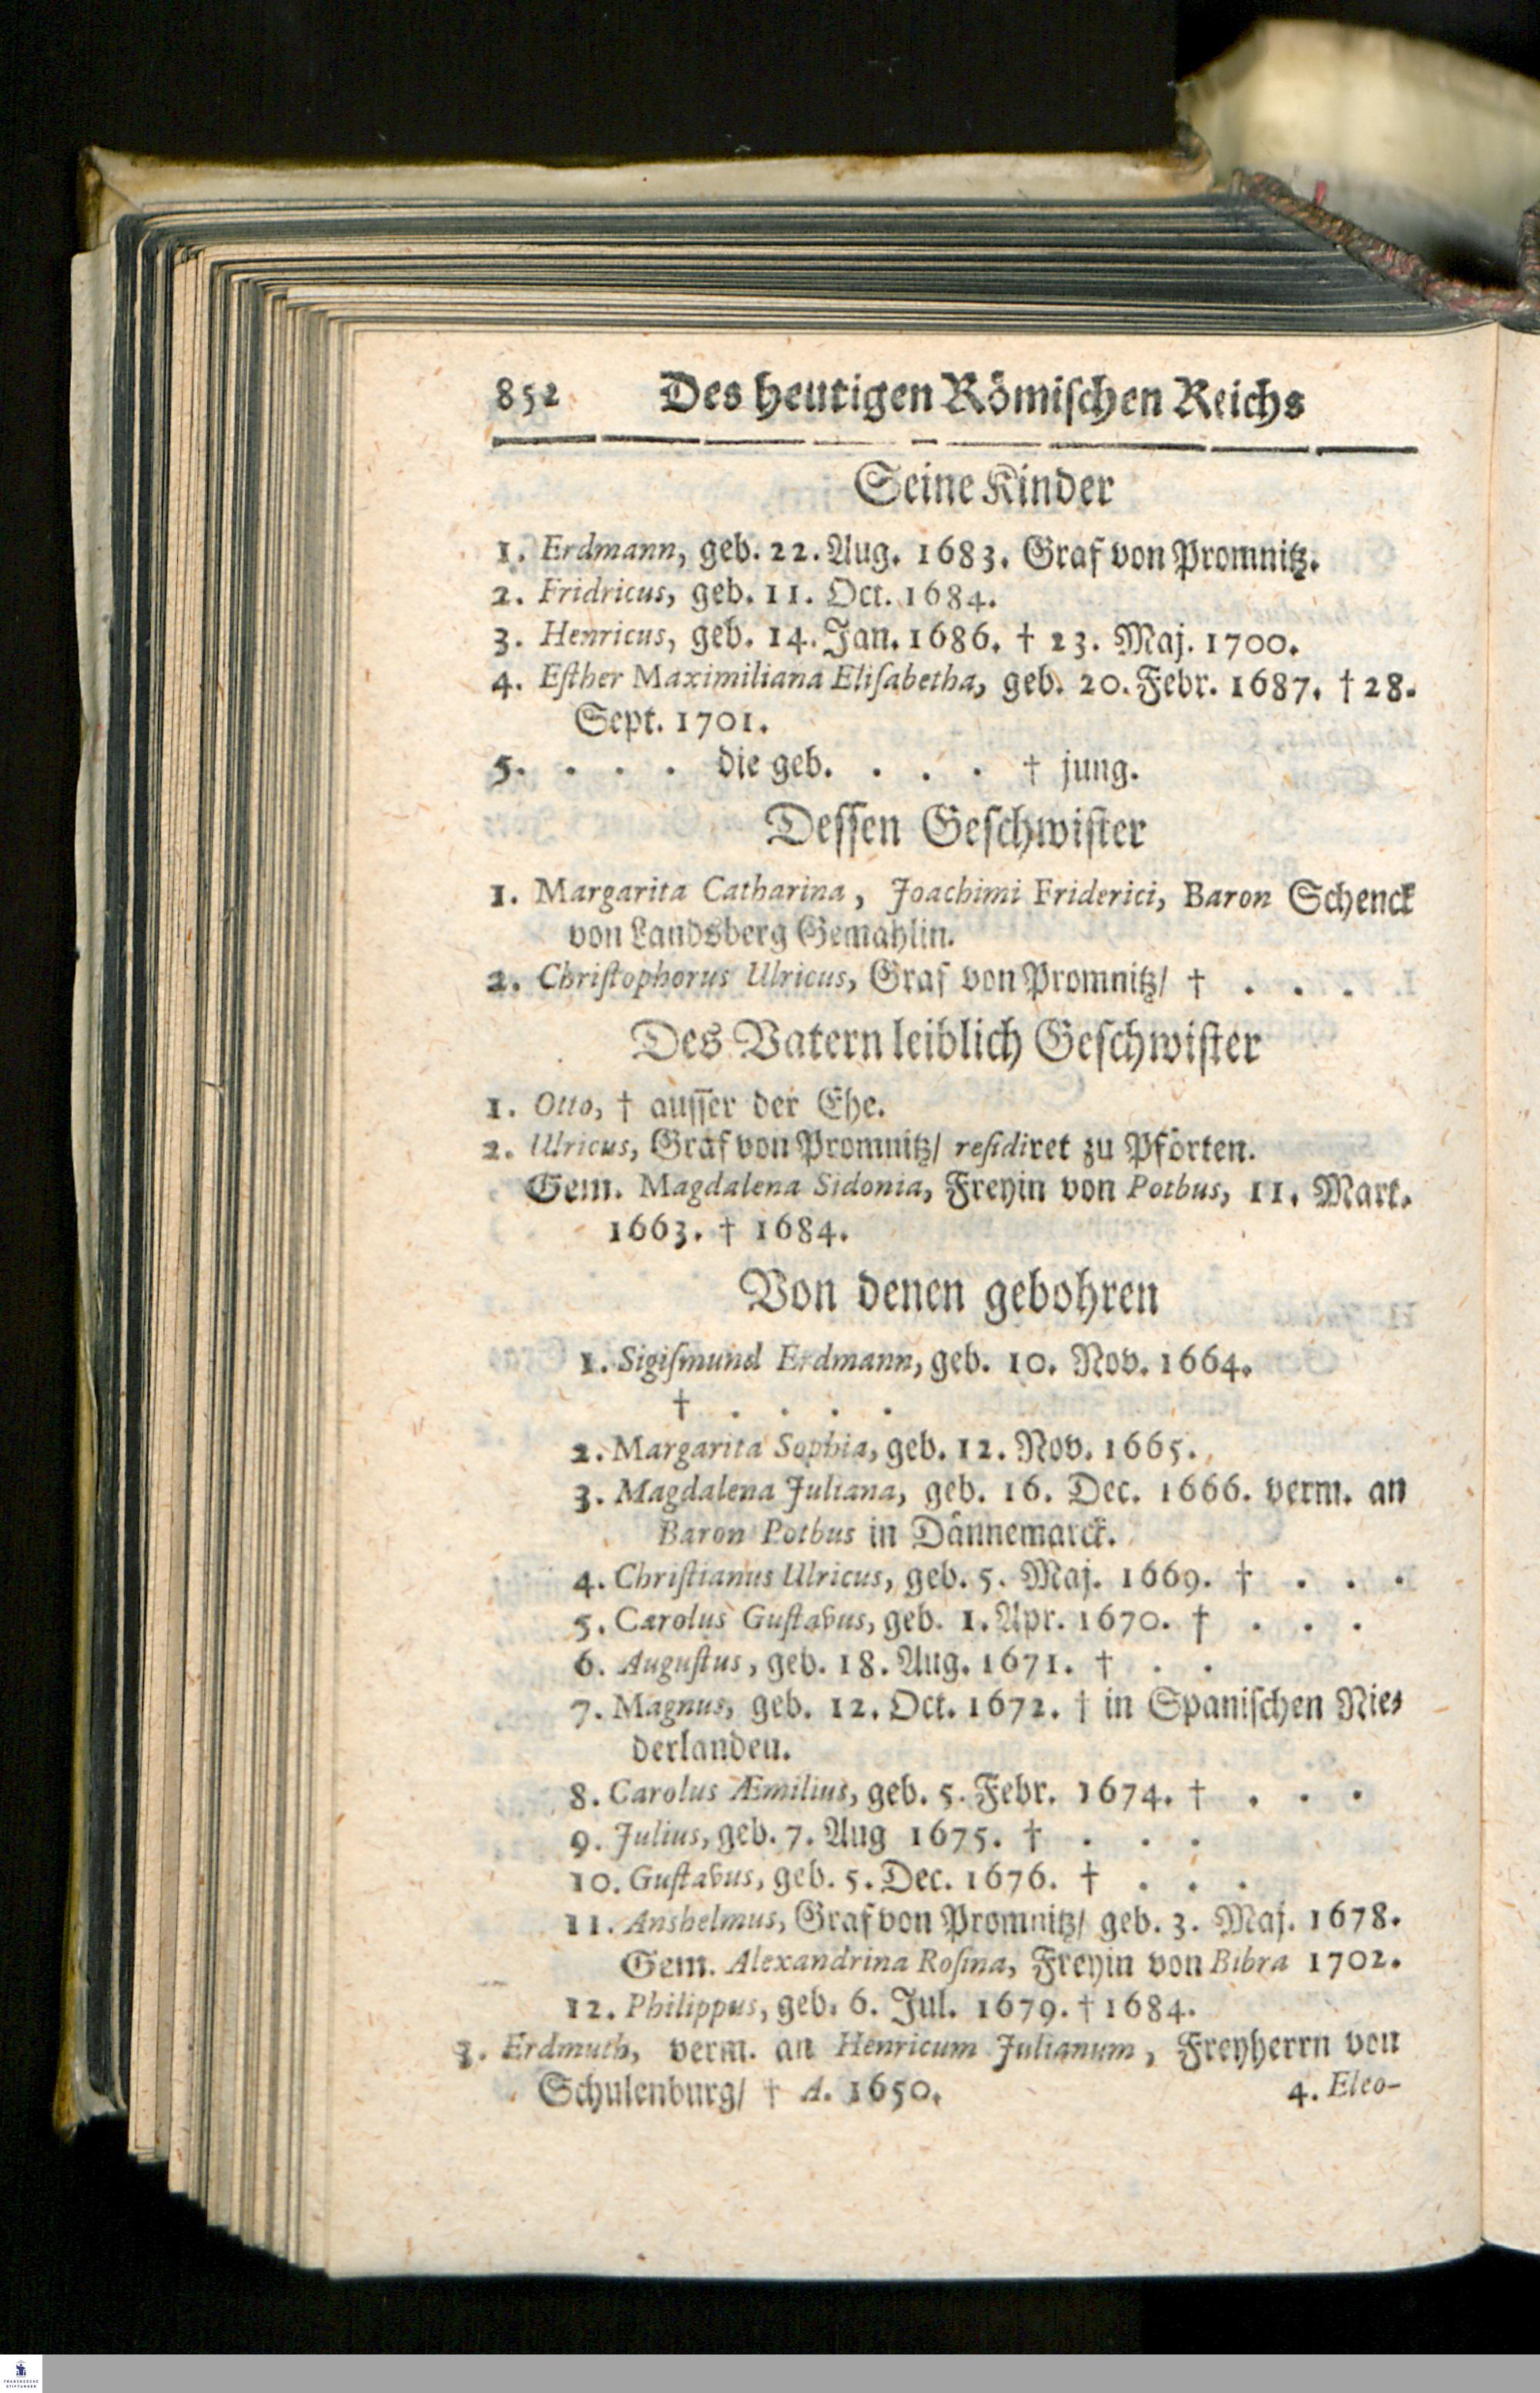 852 Des heutigen Römischen Reichs
Seine Kinder
1. Erdmann, geb. 22. Aug. 1683. Graf von Promnitz.
2. Fridricus, geb. 11. Oct. 1684.
3. Henricus, geb. 14. Jan. 1686. † 23. Maj. 1700.
4. Esther Maximiliana Elisabetha, geb. 20. Febr. 1687. † 28.
Sept. 1701.
5. . . . die geb. . . . † jung.
Dessen Geschwister
1. Margarita Catharina, Joachimi Friderici, Baron Schenck
von Landsberg Gemahlin.
2. Christophorus Ulricus, Graf von Promnitz/ † . . .
Des Vatern leiblich Geschwister
1. Otto, † ausser der Ehe.
2. Ulricus, Graf von Promnitz/ residiret zu Pförten.
Gem. Magdalena Sidonia, Freyin von Potbus, 11. Mart.
1663. † 1684.
Von denen gebohren
1. Sigismund Erdmann, geb. 10. Nov. 1664.
† . . . .
2. Margarita Sophia, geb. 12. Nov. 1665.
3. Magdalena Juliana, geb. 16. Dec. 1666. verm. an
Baron Potbus in Dännemarck.
4. Christianus Ulricus, geb. 5. Maj. 1669. † . . .
5. Carolus Gustavus, geb. 1. Apr. 1670. † . . .
6. Augustus, geb. 18. Aug. 1671. † . .
7. Magnus, geb. 12. Oct. 1672. † in Spanischen Nie-
derlanden.
8. Carolus Æmilius, geb. 5. Febr. 1674. † . . .
9. Julius, geb. 7. Aug 1675. † . . .
10. Gustavus, geb. 5. Dec. 1676. † . . .
11. Anshelmus, Graf von Promnitz/ geb. 3. Maj. 1678.
Gem. Alexandrina Rosina, Freyin von Bibra 1702.
12. Philippus, geb. 6. Jul. 1679. † 1684.
3. Erdmuth, verm. an Henricum Julianum, Freyherrn von
Schulenburg/ † A. 1650.
4. Eleo-
FRANCKESCHE
STIFTUNGEN